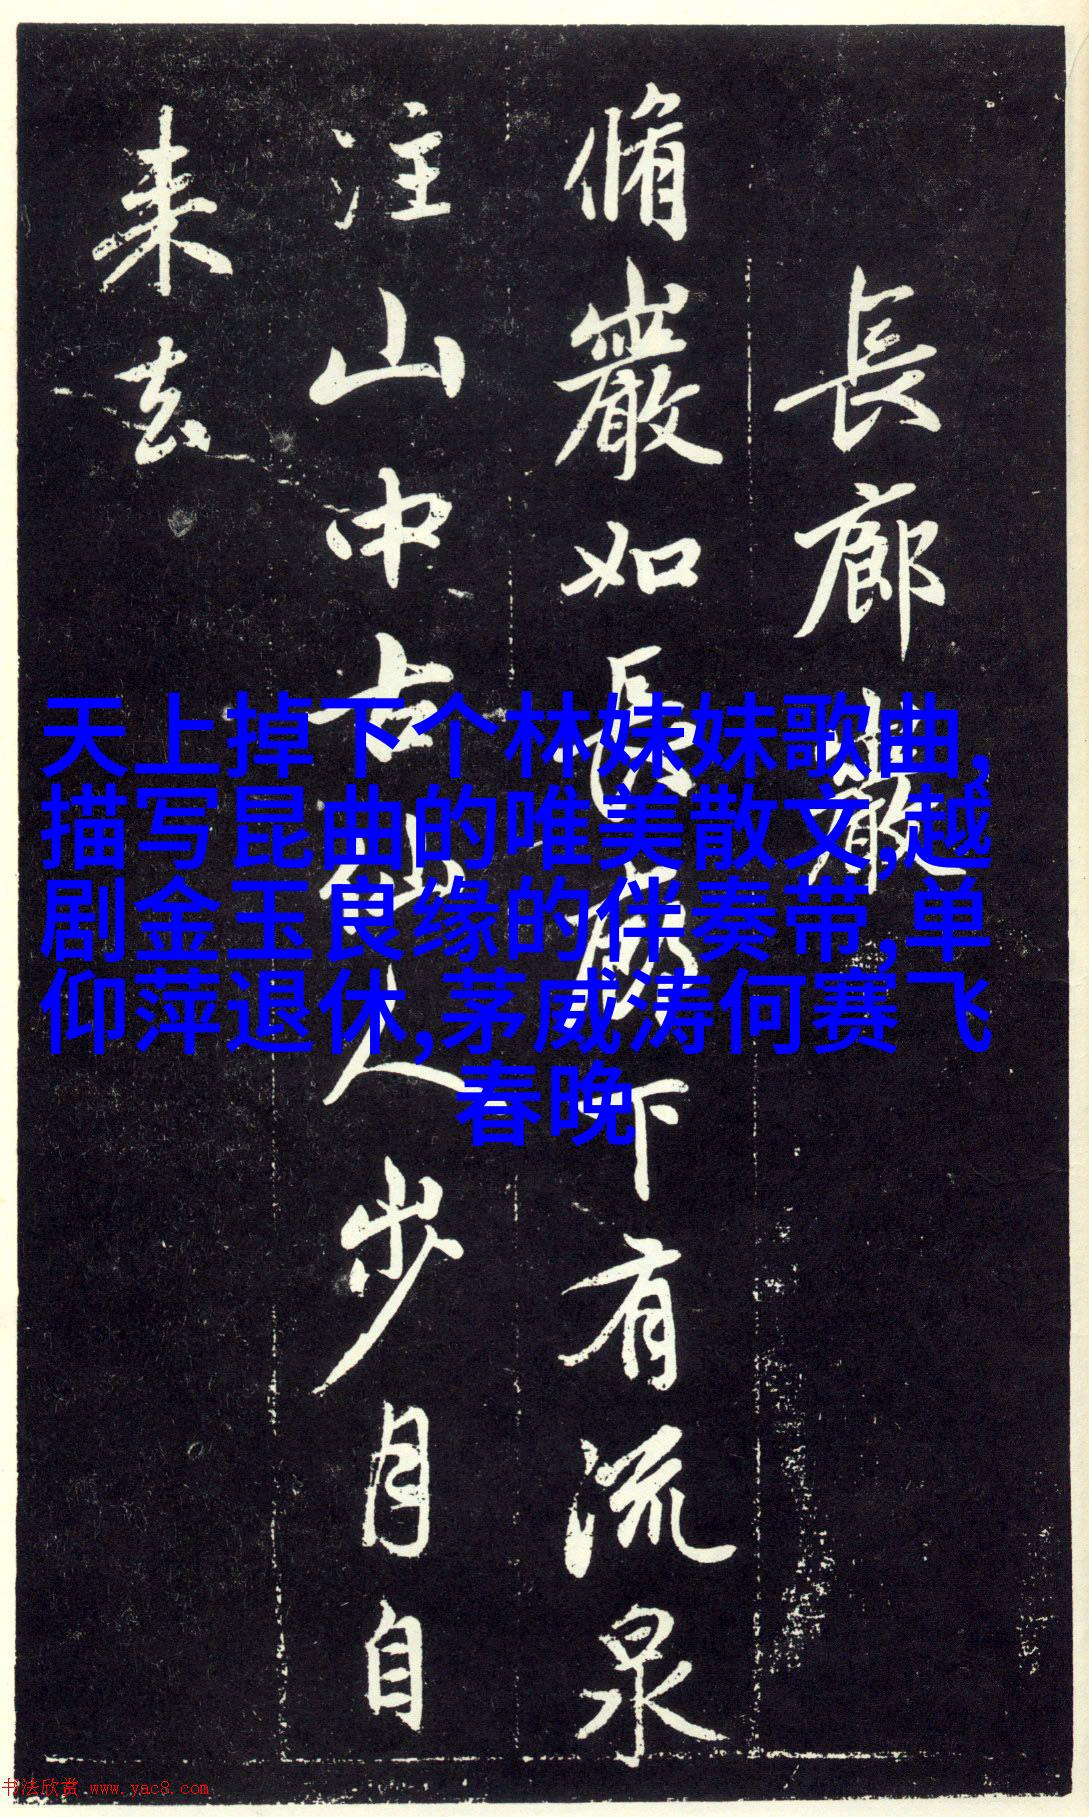 長廊巖
脩巖如長廊下有流泉
注山中古仙人步月自
来去
天上掉下个林妹妹歌曲,
描写昆曲的唯美散文,越
剧金玉良缘的伴奏带,单
仰萍退休,茅威涛何赛飞
春晚
书法欣赏 www.yac8.com